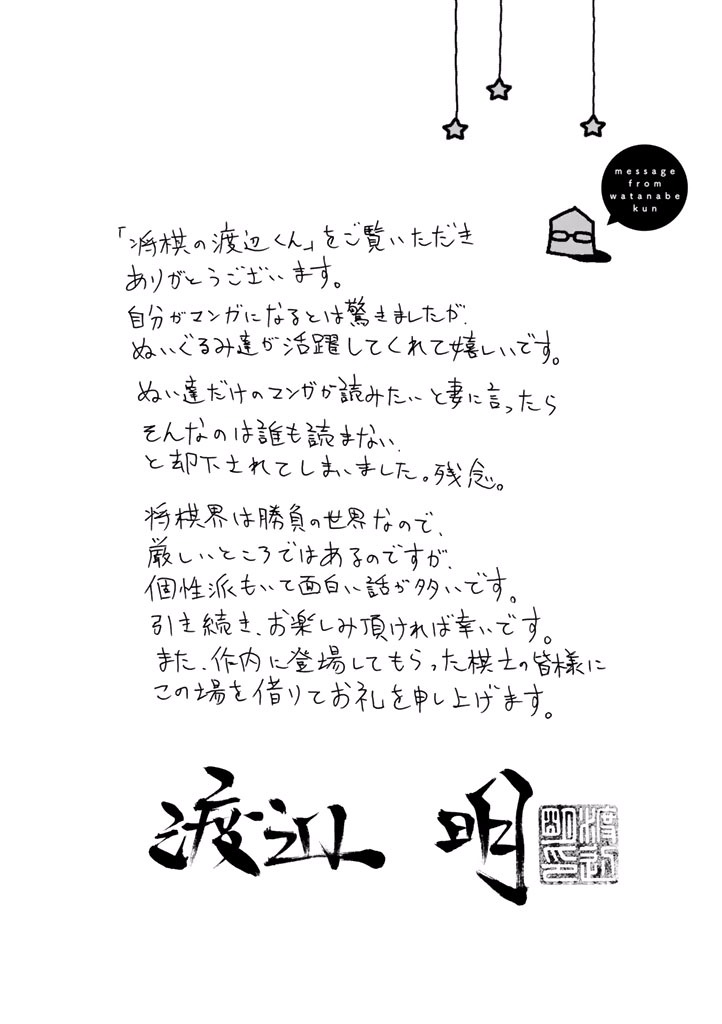 message
from
watanabe
kun
「将棋の渡辺くん」をご覧いただき
ありがとうございます。
自分がマンガになるとは驚きましたが、
ぬいぐるみ達が活躍してくれて嬉しいです。
ぬい達だけのマンガが読みたいと妻に言ったら
そんなのは誰も読まない、
と却下されてしまいました。残念。
将棋界は勝負の世界なので、
厳しいところではあるのですが、
個性派もいて面白い話が多いです。
引き続き、お楽しみ頂ければ幸いです。
また、作内に登場してもらった棋士の皆様に
この場を借りてお礼を申し上げます。
渡辺 明